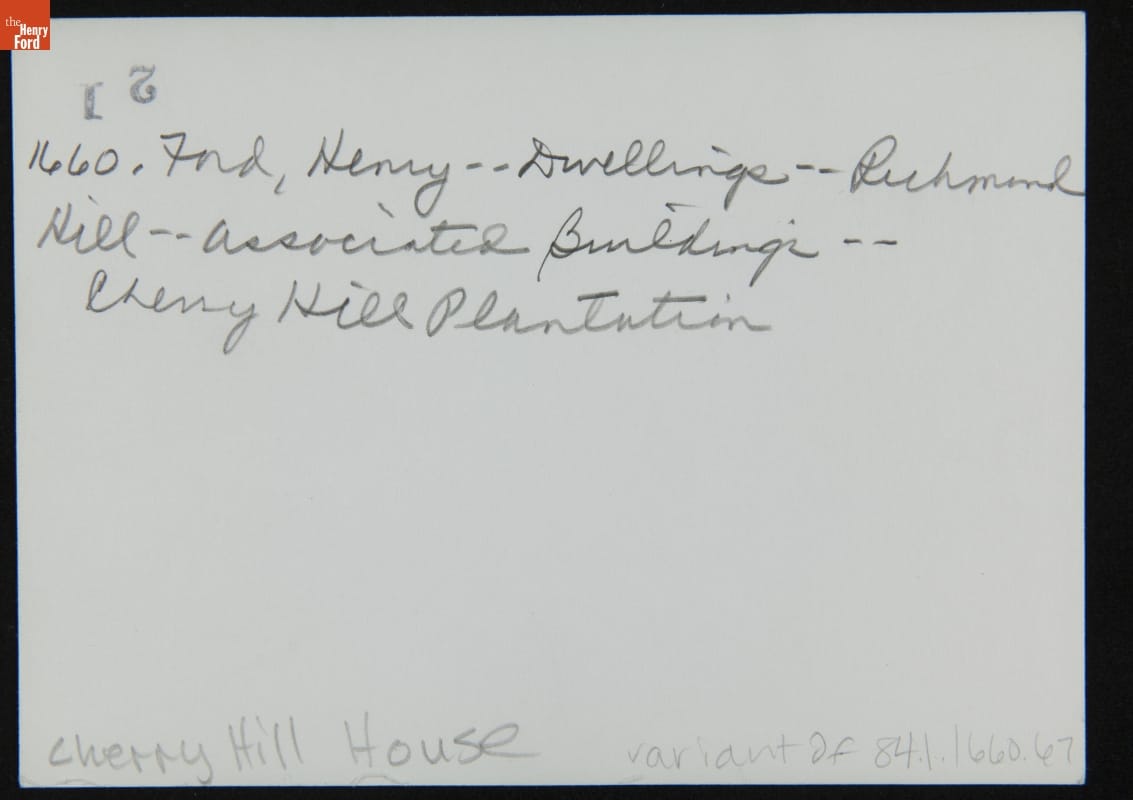 the
Henry
Ford
12
1660. Ford, Henry--Dwellings--Richmond
Hill--Associated Buildings--
Cherry Hill Plantation
Cherry Hill House
variant of 84.1.1660.67